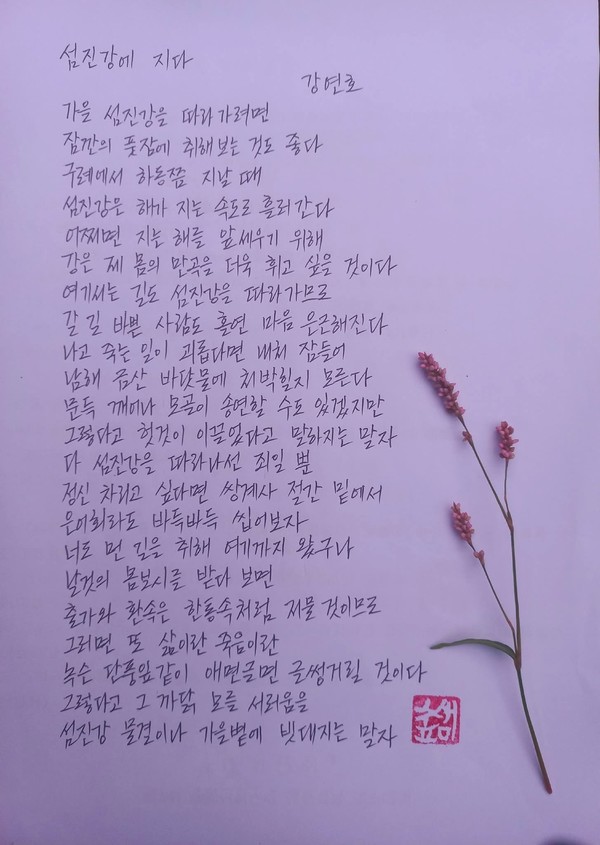 섬진강에 지다
강연호
가을 섬진강을 따라가려면
잠깐의 풋잠에 취해보는 것도 좋다
구례에서 하동쯤 지날 때
섬진강은 해가 지는 속도로 흘러간다
어쩌면 지는 해를 앞세우기 위해
강은 제 몸의 만곡을 더욱 휘고 싶을 것이다
여기서는 길도 섬진강을 따라가므로
갈 길 바쁜 사람도 혹연 마음 은근해진다
나고 죽는 일이 괴롭다면 내쳐 잠들어
남해 금산 바닷물에 처박힐지 모른다
문득 깨어나 모골이 송연할 수도 있겠지만
그렇다고 헛것이 이끌었다고 말하지는 말자
다 섬진강을 따라나선 죄일 뿐
정신 차리고 싶다면 쌍계사 절간 밑에서
은어회라도 바득바득 씹어보자
너도 먼 길을 취해 여기까지 왔구나
날것의 몸보시를 받다 보면
출가와 환속은 한통속처럼 저물 것이므로
그러면 또 삶이란 죽음이란
녹슨 단풍잎같이 애면글면 글썽거릴 것이다
그렇다고 그 까닭 모를 서러움을
섬진강 물결이나 가을볕에 빗대지는 말자